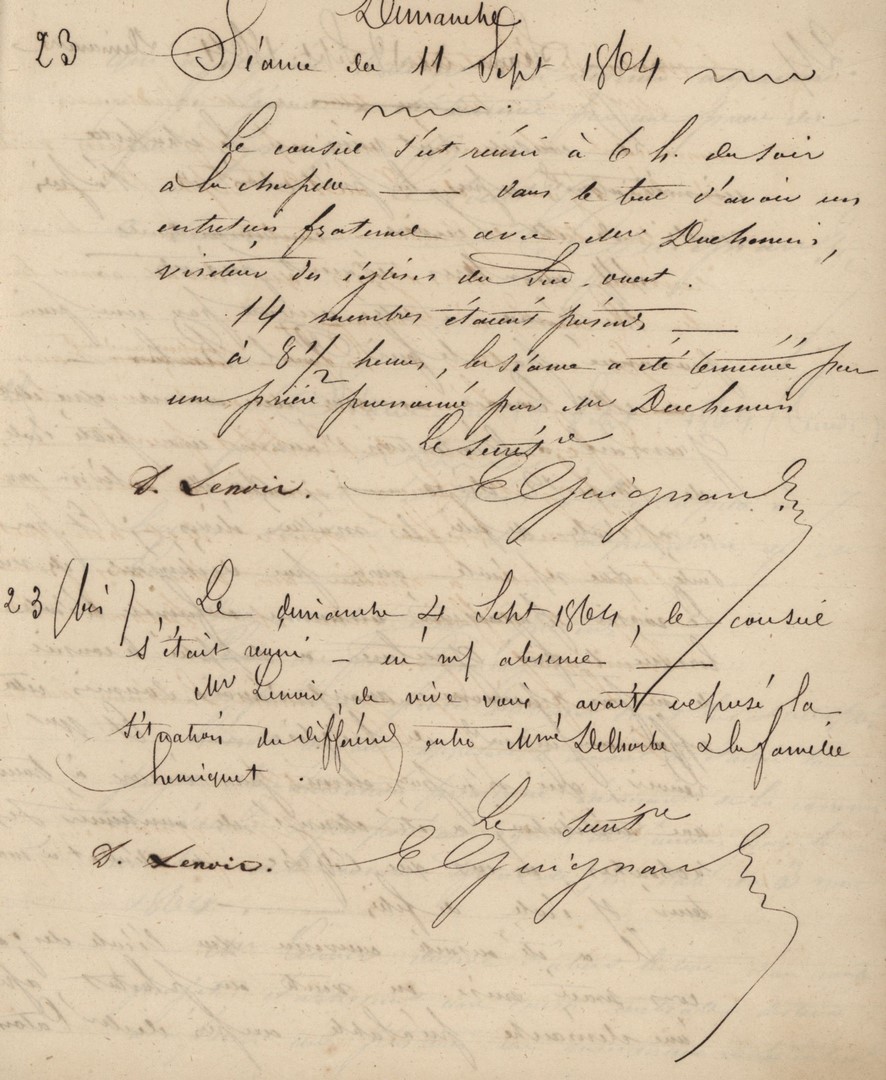 Dimanche
23 Séance du 11 Sept 1864
Le conseil s'est réuni à 6 h. du soir
à la chapelle — dans le but d'avoir un
entretien fraternel avec Mr Duchemin,
visiteur des églises du Sud-ouest.
14 membres étaient présents —
à 8 1/2 heures, la séance a été terminée par
une prière prononcée par Mr Duchemin
Le secrétre
D. Lenoir. E Guignard
23 (bis), Le dimanche 4 Sept 1864, le conseil
s'était réuni — en mf absence —
Mr Lenoir, de vive voix avait exposé la
situation du différend entre Mme Delhorbe & la famille
Chemiquet.
Le secrétre
D. Lenoir. E Guignard